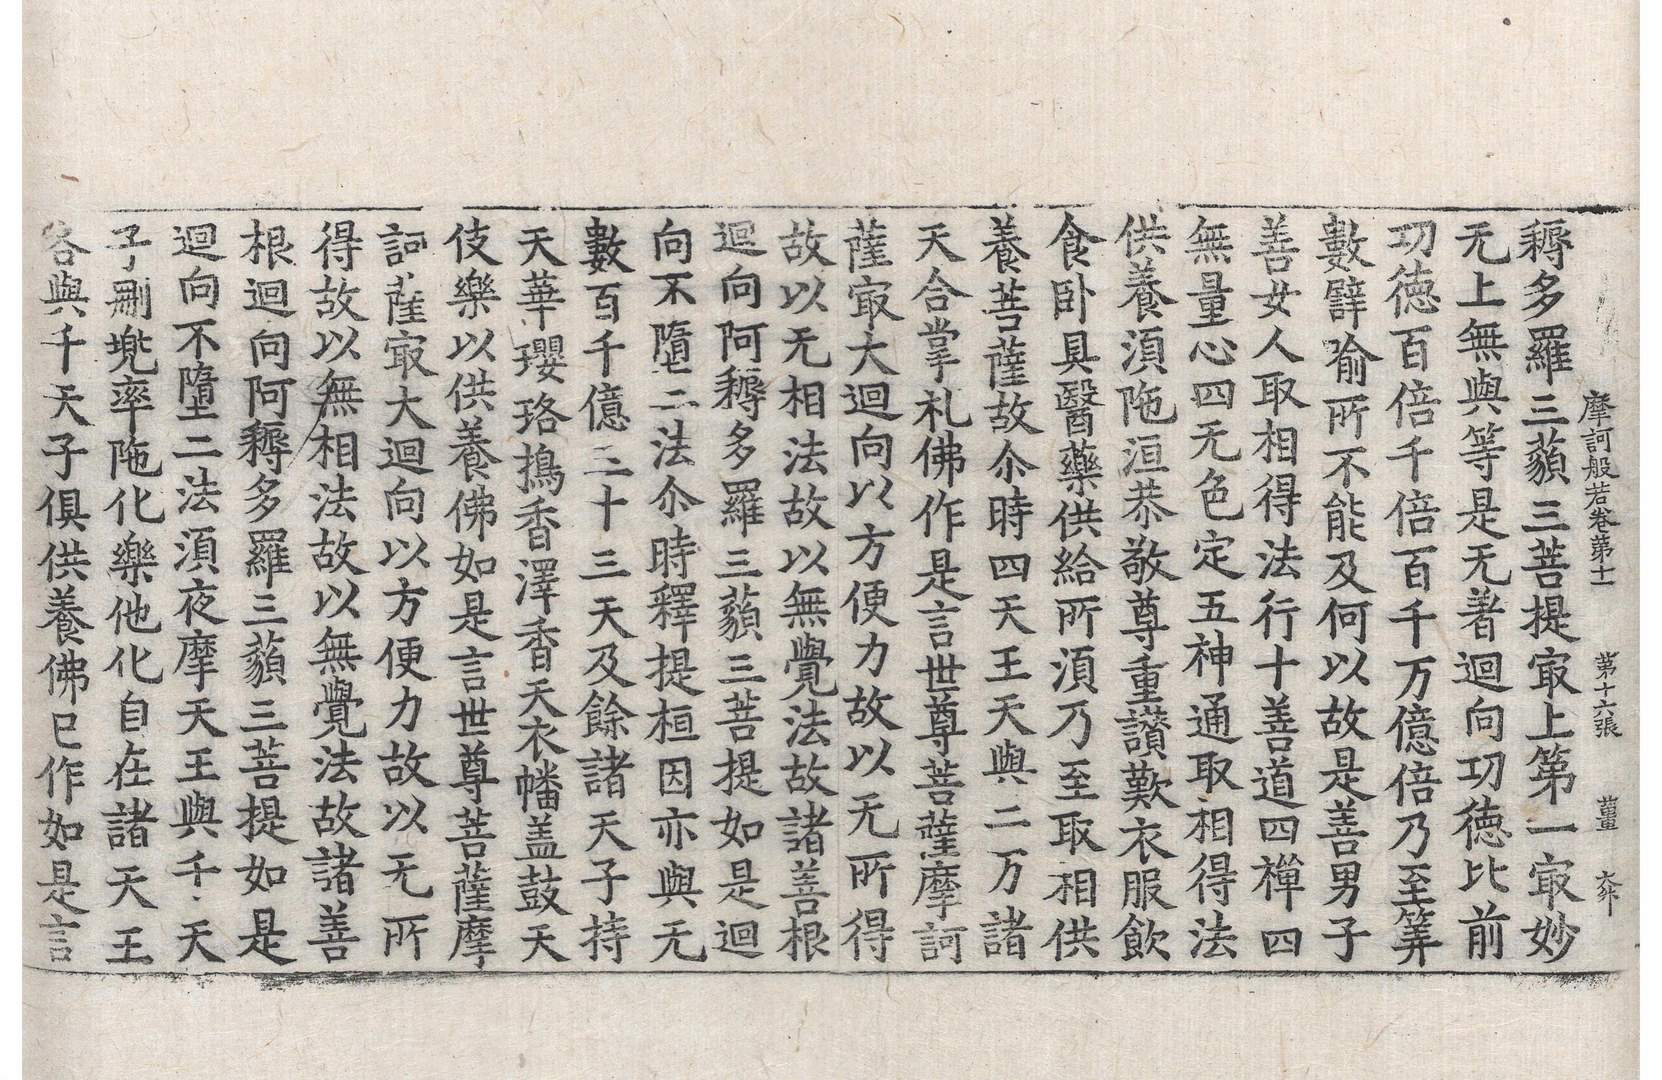 摩訶般若卷第十一 第十六張 薑
耨多羅三藐三菩提㝡上第一㝡妙
无上無與等是无著迴向功德比前
功德百倍千倍百千万億倍乃至筭
數譬喻所不能及何以故是善男子
善女人取相得法行十善道四禪四
無量心四无色定五神通取相得法
供養須陁洹恭敬尊重讃歎衣服飲
食卧具醫藥供給所須乃至取相供
養菩薩故尒時四天王天與二万諸
天合掌礼佛作是言世尊菩薩摩訶
薩㝡大迴向以方便力故以无所得
故以无相法故以無覺法故諸善根
迴向阿耨多羅三藐三菩提如是迴
向不墮二法尒時釋提桓因亦與无
數百千億三十三天及餘諸天子持
天華瓔珞擣香澤香天衣幡盖鼓天
伎樂以供養佛如是言世尊菩薩摩
訶薩㝡大迴向以方便力故以无所
得故以無相法故以無覺法故諸善
根迴向阿耨多羅三藐三菩提如是
迴向不墮二法須夜摩天王與千天
子刪兜率陁化樂他化自在諸天王
各與千天子俱供養佛已作如是言